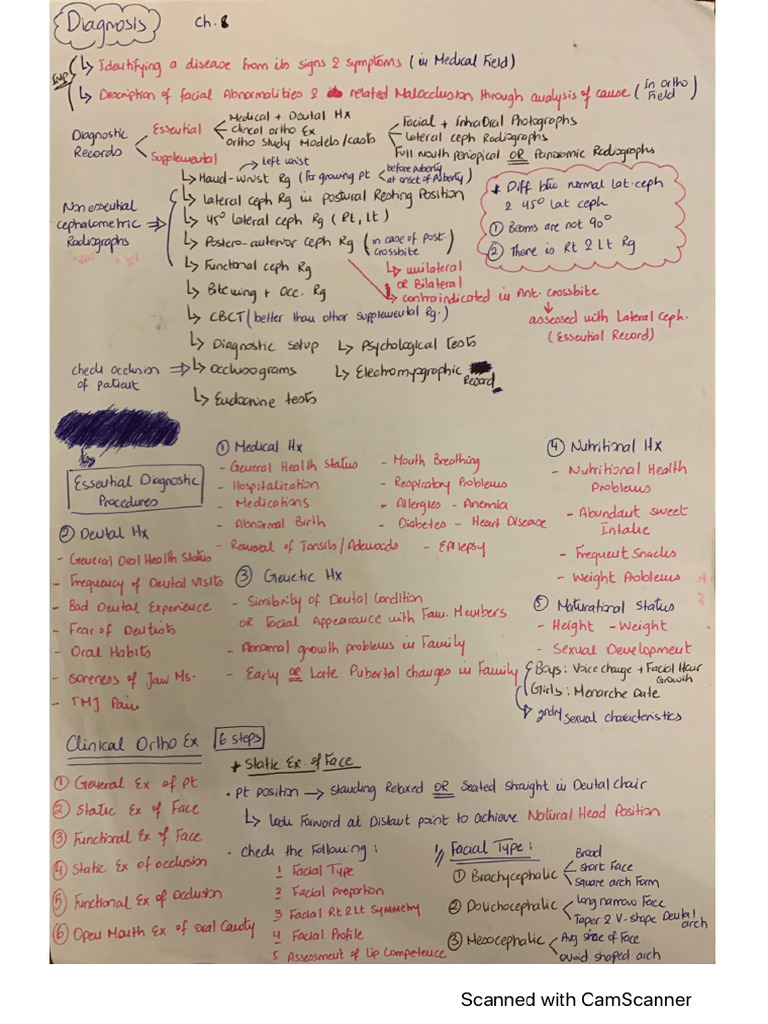 Diagnosis Ch. 8
Imp
↳ Identifying a disease from its signs & symptoms (in Medical Field)
↳ Description of facial Abnormalities & related Malocclusion through analysis of cause (In ortho Field)
Diagnostic Records
Essential
Medical + Dental Hx
clinical ortho Ex
ortho study Models/casts
Facial + IntraOral Photographs
Lateral ceph Radiographs
Full Mouth periapical OR Panoramic Radiographs
Supplemental
↳ Hand-wrist Rg (For growing pt
left wrist
before puberty
at onset of puberty)
Non essential cephalometric Radiographs ⇒
↳ Lateral ceph Rg in postural Resting Position
↳ 45° lateral ceph Rg (Rt, Lt)
↳ Postero-anterior ceph Rg (in case of post. crossbite)
↳ unilateral
OR Bilateral
↳ contraindicated in Ant. crossbite
↓
assessed with Lateral ceph.
(Essential Record)
↳ Functional ceph Rg
* Diff btw normal lat. ceph
& 45° lat ceph
① Beams are not 90°
② There is Rt & Lt Rg
↳ Bitewing + Occ. Rg
↳ CBCT (better than other supplemental Rg.)
↳ Diagnostic setup
↳ Psychological Tests
check occlusion of patient ⇒ ↳ occlusograms
↳ Electromyographic Record
↳ Endocrine tests
Essential Diagnostic
Procedures
① Medical Hx
- General Health Status
- Hospitalization
- Medications
- Abnormal Birth
- Removal of Tonsils/Adenoids
- Mouth Breathing
- Respiratory Problems
- Allergies - Anemia
- Diabetes - Heart Disease
- Epilepsy
④ Nutritional Hx
- Nutritional Health Problems
- Abundant sweet Intake
- Frequent Snacks
- Weight Problems
② Dental Hx
- General Oral Health Status
- Frequency of Dental Visits
- Bad Dental Experience
- Fear of Dentists
- Oral Habits
- soreness of Jaw Ms.
- TMJ Pain
③ Genetic Hx
- Similarity of Dental Condition
OR Facial Appearance with Fam. Members
- Abnormal growth problems in Family
- Early OR Late Pubertal changes in Family
⑤ Maturational Status
- Height - Weight
- Sexual Development
Boys: Voice change + Facial Hair Growth
Girls: Menarche Date
2ndry sexual characteristics
Clinical Ortho Ex 6 steps
① General Ex of Pt
② Static Ex of Face
③ Functional Ex of Face
④ Static Ex of occlusion
⑤ Functional Ex of Occlusion
⑥ Open Mouth Ex of Oral Cavity
* Static Ex. of Face
• Pt position → Standing Relaxed OR Seated straight in Dental chair
↳ Look Forward at Distant point to achieve Natural Head Position
• Check the Following:
1 Facial Type
2 Facial Proportion
3 Facial Rt & Lt Symmetry
4 Facial Profile
5 Assessment of Lip Competence
1// Facial Type:
① Brachycephalic
Broad
short Face
square arch Form
② Dolichocephalic
long narrow Face
Taper & V-shape Dental arch
③ Mesocephalic
Avg shape of Face
ovoid shaped arch
Scanned with CamScanner